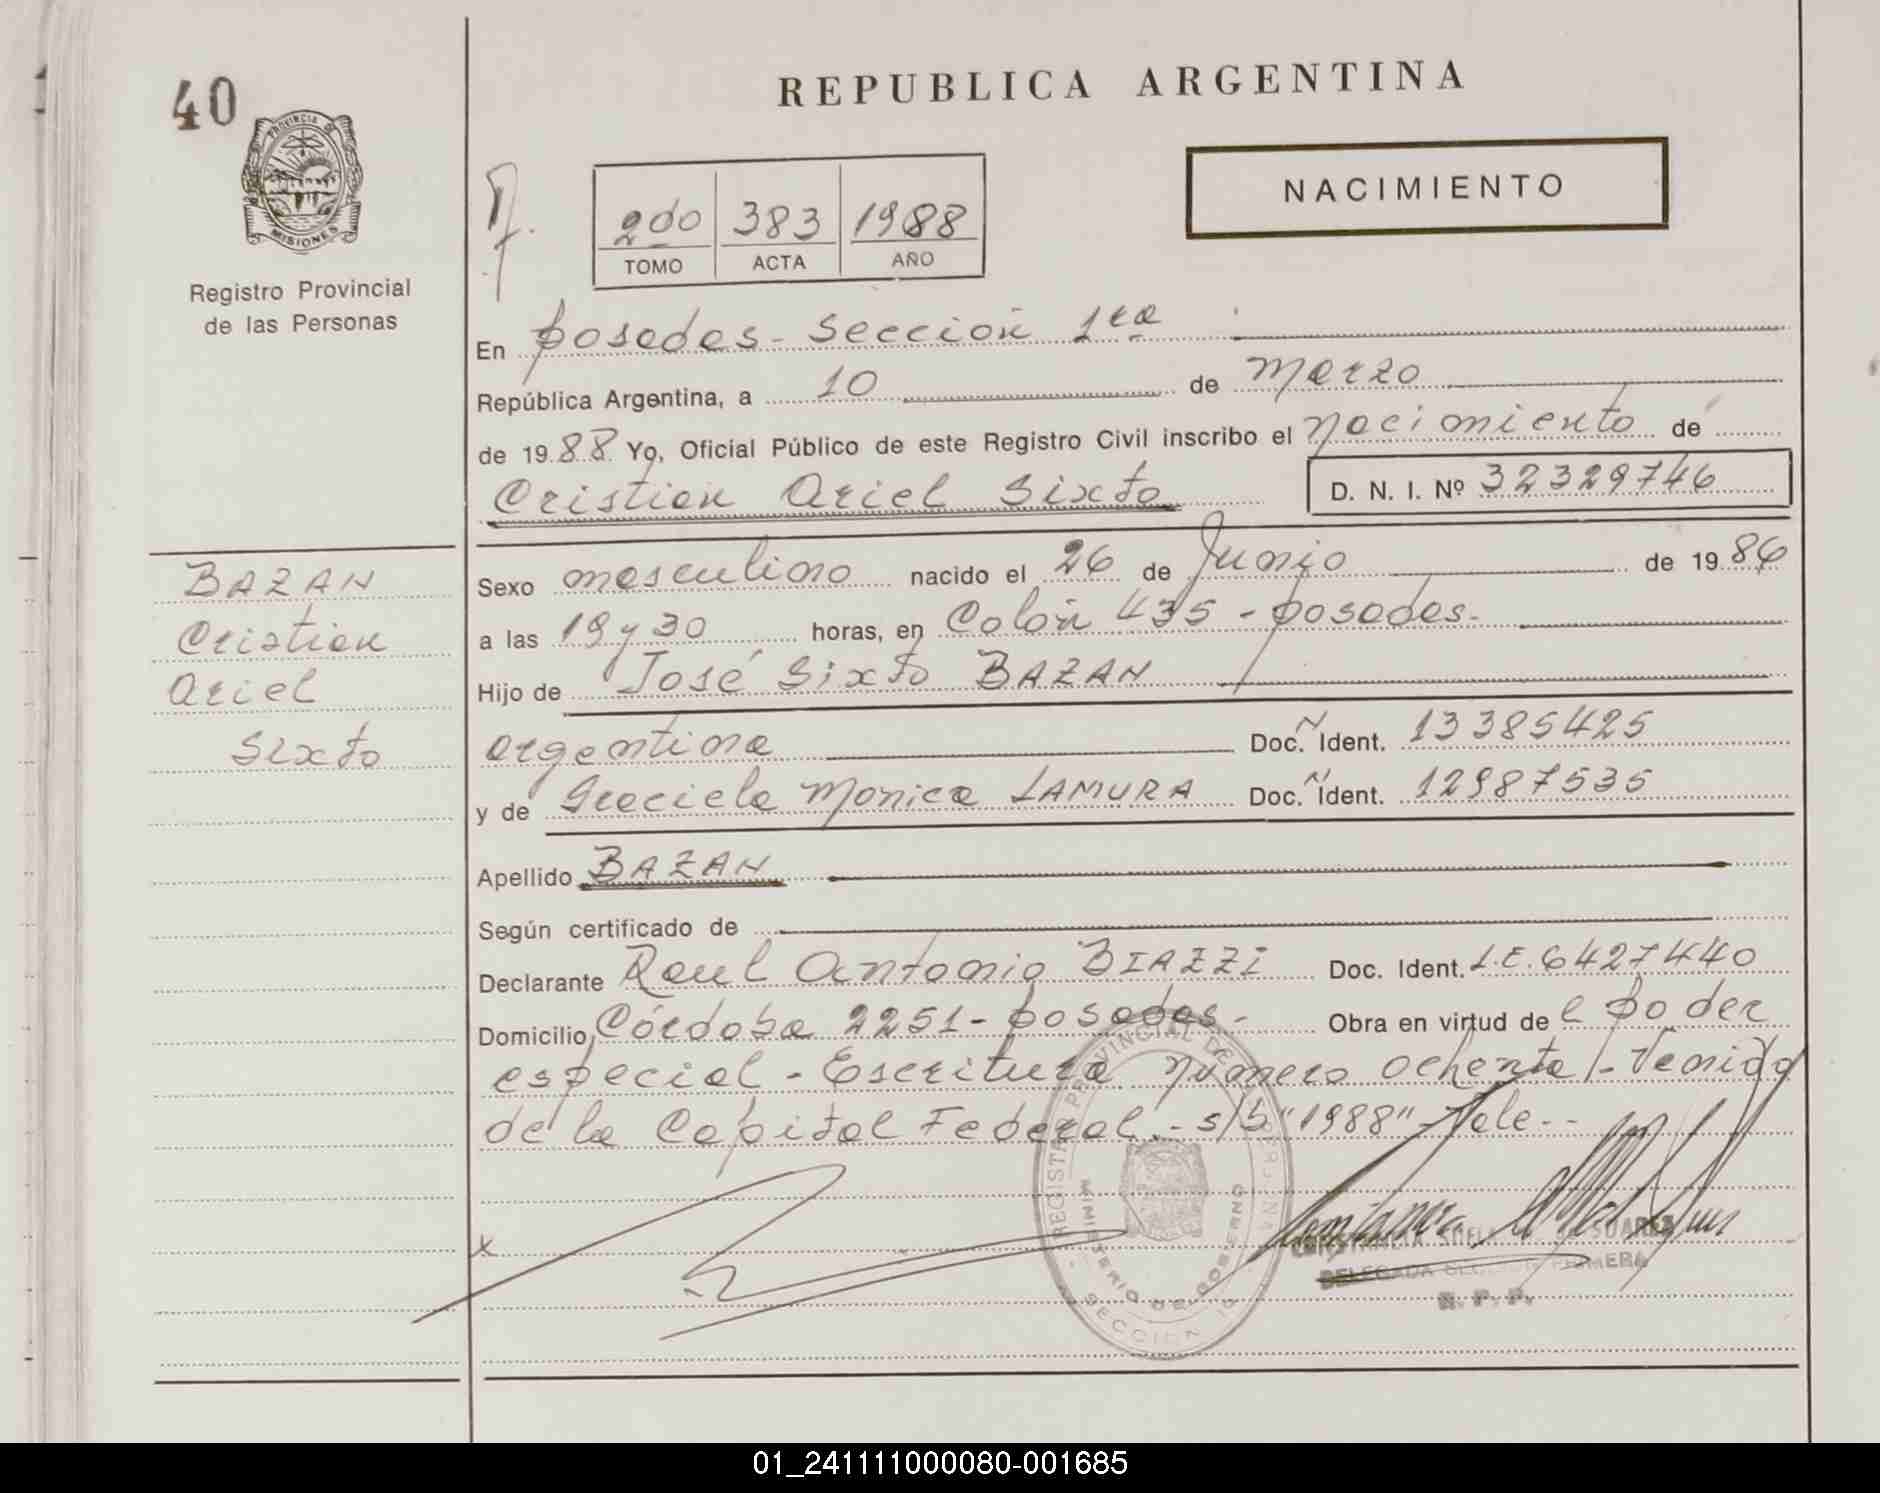 40
REPUBLICA ARGENTINA
PROVINCIA DE
MISIONES
Registro Provincial
de las Personas
2do 383 1988
TOMO ACTA AÑO
NACIMIENTO
En Posadas - Sección 1ra
República Argentina, a 10 de Marzo
de 1988 Yo, Oficial Público de este Registro Civil inscribo el nacimiento de
Cristian Ariel Sixto D. N. I. Nº 32329746
BAZAN
Cristian
Ariel
Sixto
Sexo masculino nacido el 26 de Junio de 1986
a las 19 y 30 horas, en Colón 435 - posadas.
Hijo de José Sixto BAZAN
argentina Doc. Ident. 13385425
y de Graciela Monica LAMURA Doc. Ident. 12987535
Apellido BAZAN
Según certificado de
Declarante Raul Antonio BIAZZI Doc. Ident. L.E. 6427440
Domicilio Córdoba 2251 - posadas - Obra en virtud de l poder
especial - Escritura número ochenta - Venida
de la Capital Federal. - s/b "1988" - Vale. -
x
REGISTRO PROVINCIAL DE
MINISTERIO DE GOBIERNO
SECCION 1a
SUAREZ
DELEGADA SECCION PRIMERA
R. P. P.
01_241111000080-001685